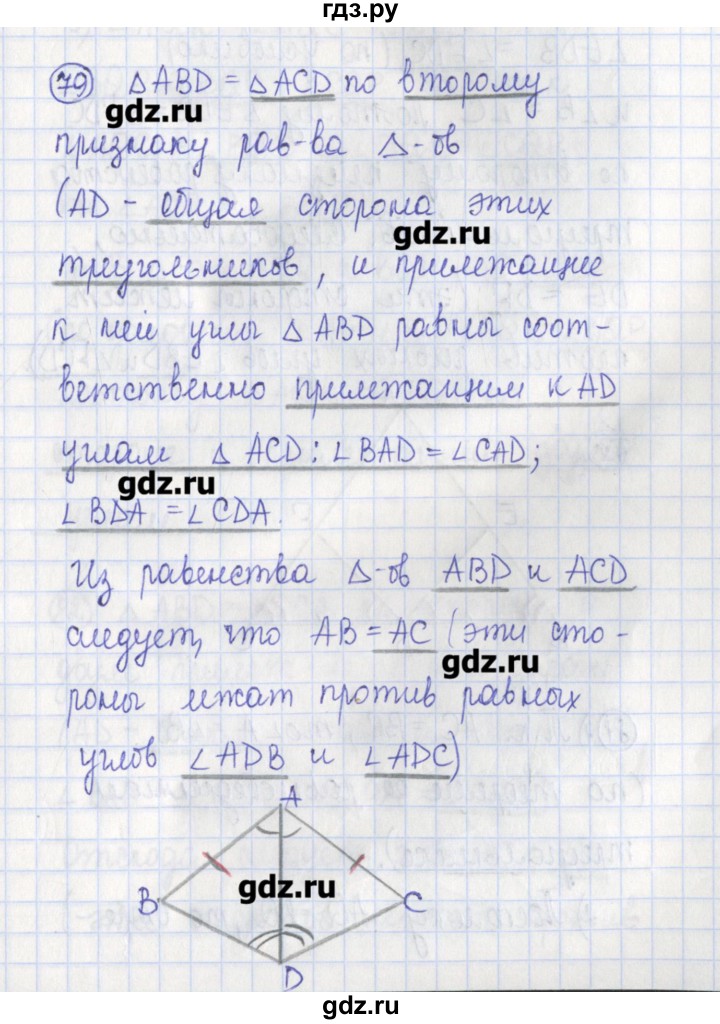 гдз.ру
79 ΔABD = ΔACD по второму
gdz.ru
признаку рав-ва Δ-ов
(AD - общая сторона этих
gdz.ru
треугольников, и прилежащие
к ней углы ΔABD равны соот-
ветственно прилежащим к AD
углам ΔACD: ∠BAD = ∠CAD;
gdz.ru
∠BDA = ∠CDA.
Из равенства Δ-ов ABD и ACD
следует, что AB = AC (эти сто-
gdz.ru
роны лежат против равных
углов ∠ADB и ∠ADC)
A
gdz.ru
B C
D
gdz.ru